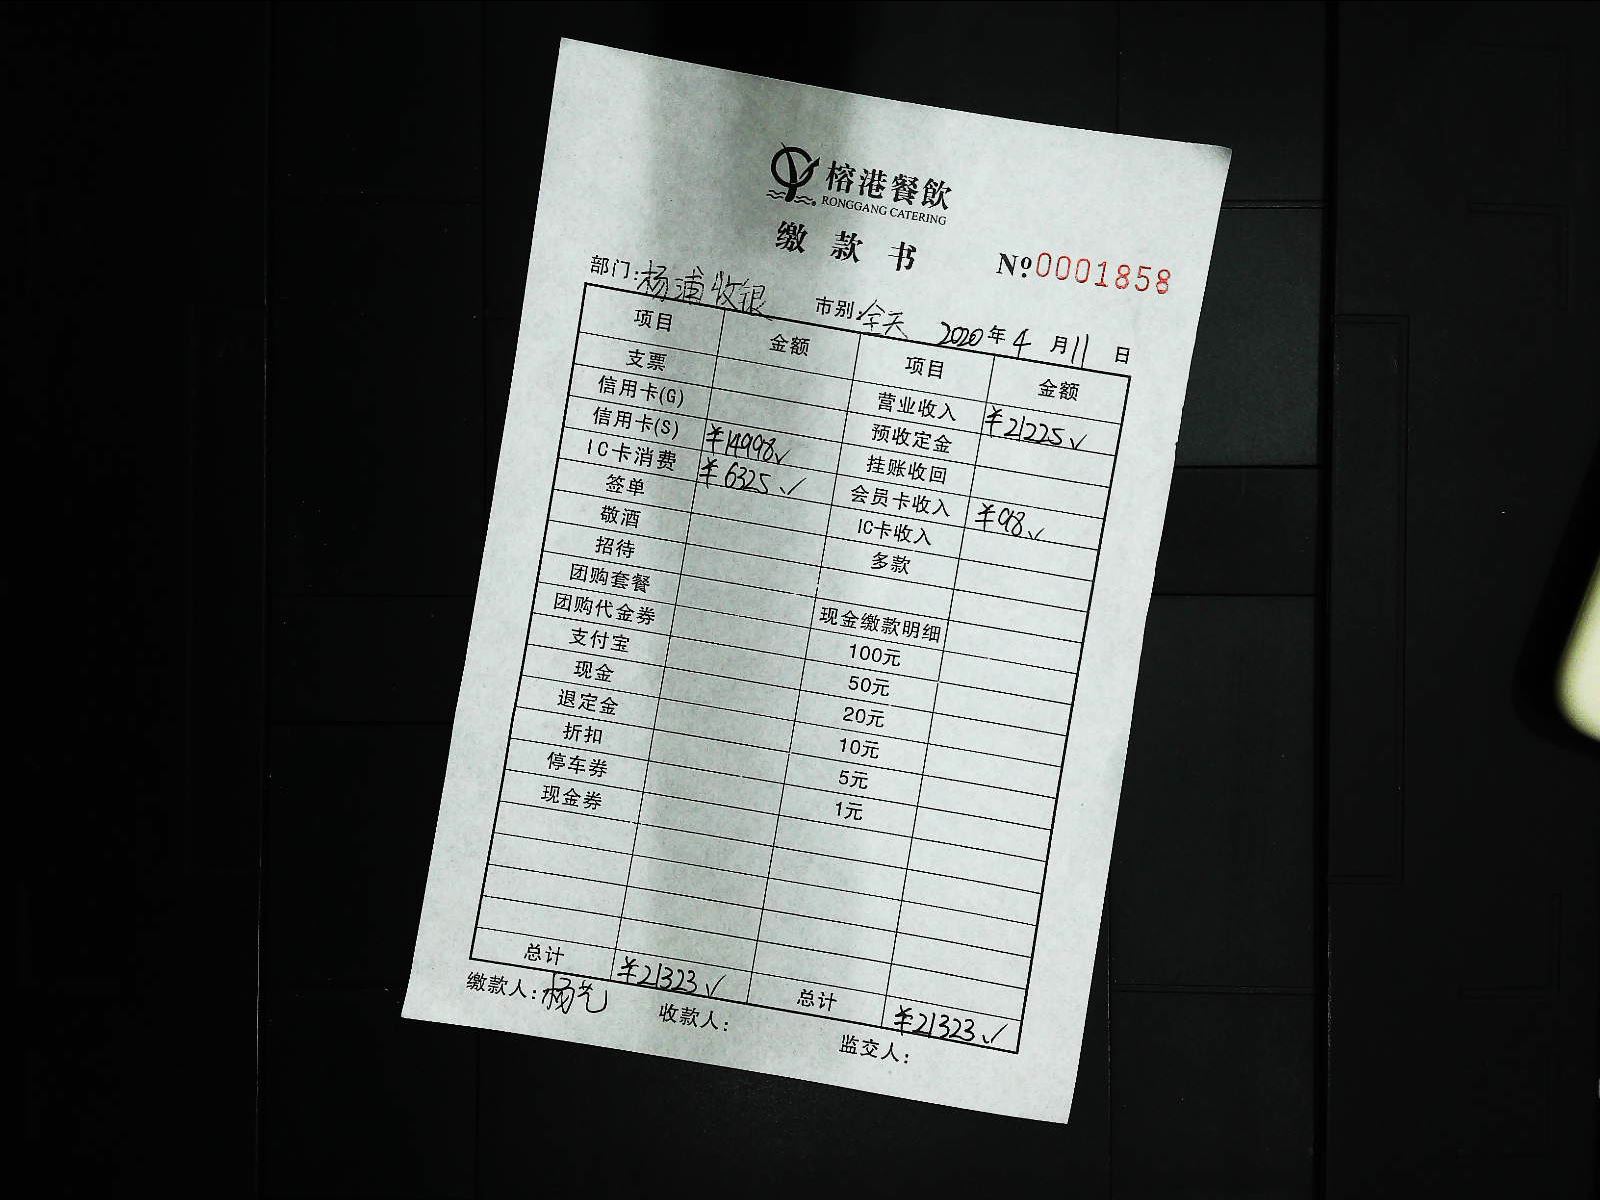 榕港餐飲
RONGGANG CATERING
缴款书
№0001858
部门:杨浦收银 市别:全天 2020年4月11日
项目 金额 项目 金额
支票 营业收入 ¥21225✓
信用卡(G) 预收定金
信用卡(S) ¥14998✓ 挂账收回
IC卡消费 ¥6325✓ 会员卡收入 ¥98✓
签单 IC卡收入
敬酒 多款
招待
团购套餐 现金缴款明细
团购代金券 100元
支付宝 50元
现金 20元
退定金 10元
折扣 5元
停车券 1元
现金券
总计 ¥21323✓ 总计 ¥21323✓
缴款人:杨艺 收款人: 监交人: